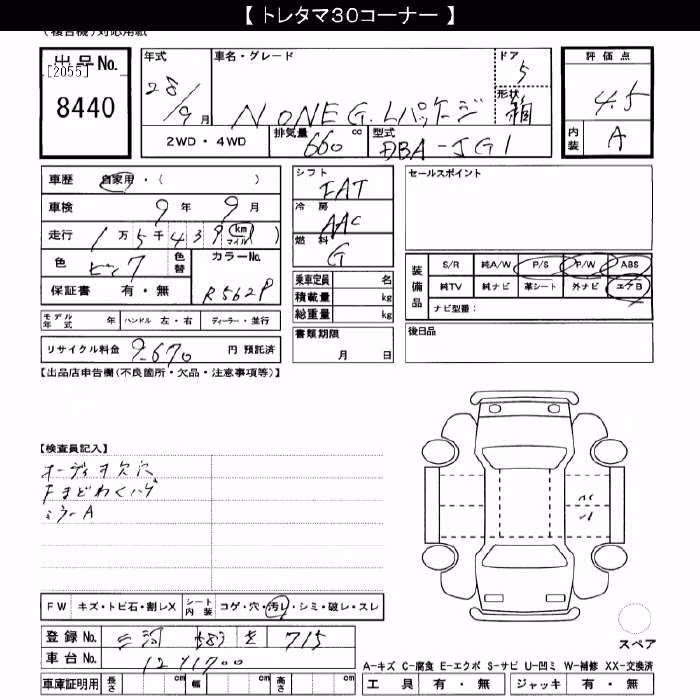 【 トレタマ30コーナー 】
(複合機)対応用紙
出品No.
[2055]
8440
年式
28/9月
車名・グレード
N ONE G.Lパッケージ
ドア
5
形状
箱
2WD・4WD
排気量
660 cc
型式
DBA-JG1
評価点
4.5
内装
A
車歴 自家用・( )
車検 9年 9月
走行 1万5千439 (km マイル)
色 ピンク
色替
カラーNo.
R562P
保証書 有・無
モデル年式 年 ハンドル 左・右 ディーラー・並行
リサイクル料金 9,670 円 預託済
シフト
FAT
冷房
AAC
燃料
G
乗車定員 名
積載量 kg
総重量 kg
書類期限
月 日
セールスポイント
装備品
S/R 純A/W P/S P/W ABS
純TV 純ナビ 革シート 外ナビ エアB
ナビ型番:
後日品
【出品店申告欄(不良箇所・欠品・注意事項等)】
【検査員記入】
オーディオ欠穴
Fまどわくハゲ
ミラーA
FW キズ・トビ石・割レX
シート内装 コゲ・穴・汚レ・シミ・破レ・スレ
登録No. 三河 583 を 715
車台No. 1241700
車庫証明用 長さ cm 幅 cm 高さ cm
スペア
A-キズ C-腐食 E-エクボ S-サビ U-凹ミ W-補修 XX-交換済
工具 有・無 ジャッキ 有・無